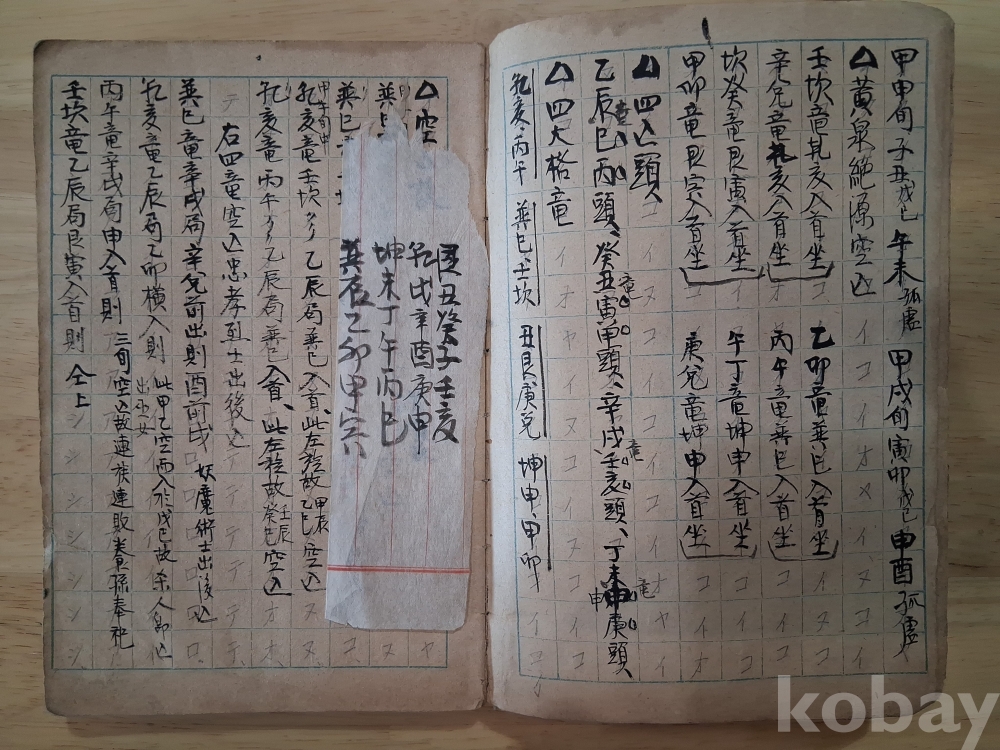 甲甲旬子丑戊己午未孤虛 甲戌旬寅卯戊己申酉孤虛
△黃泉絶源空亡
壬坎竜乾亥入首坐 乙卯竜巽巳入首坐
辛兌竜乾亥入首坐 丙午竜巽巳入首坐
坎癸竜艮寅入首坐 午丁竜坤申入首坐
甲卯竜艮寅入首坐 庚兌竜坤申入首坐
△四亡頭
乙辰巳丙頭、癸丑寅甲頭、辛戌壬亥頭、丁未申庚頭
△四大格竜
乾亥、丙午 巽巳、壬坎 丑艮庚兌 坤申、甲卯
△空
巽巳
巽巳
乾亥竜壬坎〃〃乙辰局巽巳入首、此左旋故乙巳空亡
甲午旬中
甲辰
乾亥竜丙午〃〃乙辰局巽巳入首、此左旋故癸巳空亡
壬辰
右四竜空亡忠孝烈士出後亡
巽巳竜辛戌局辛兌前出則酉前戌 妖魔術士出後亡
乾亥竜乙辰局乙卯橫入則 此甲乙空而入於戊己故 亡
出巫女
丙午竜辛戌局申入首則 三旬空亡故連族連敗養孫奉祀
壬坎竜乙辰局艮寅入首則 仝上
艮丑癸子壬亥
乾戌辛酉庚申
坤未丁午丙巳
巽辰乙卯甲寅
kobay